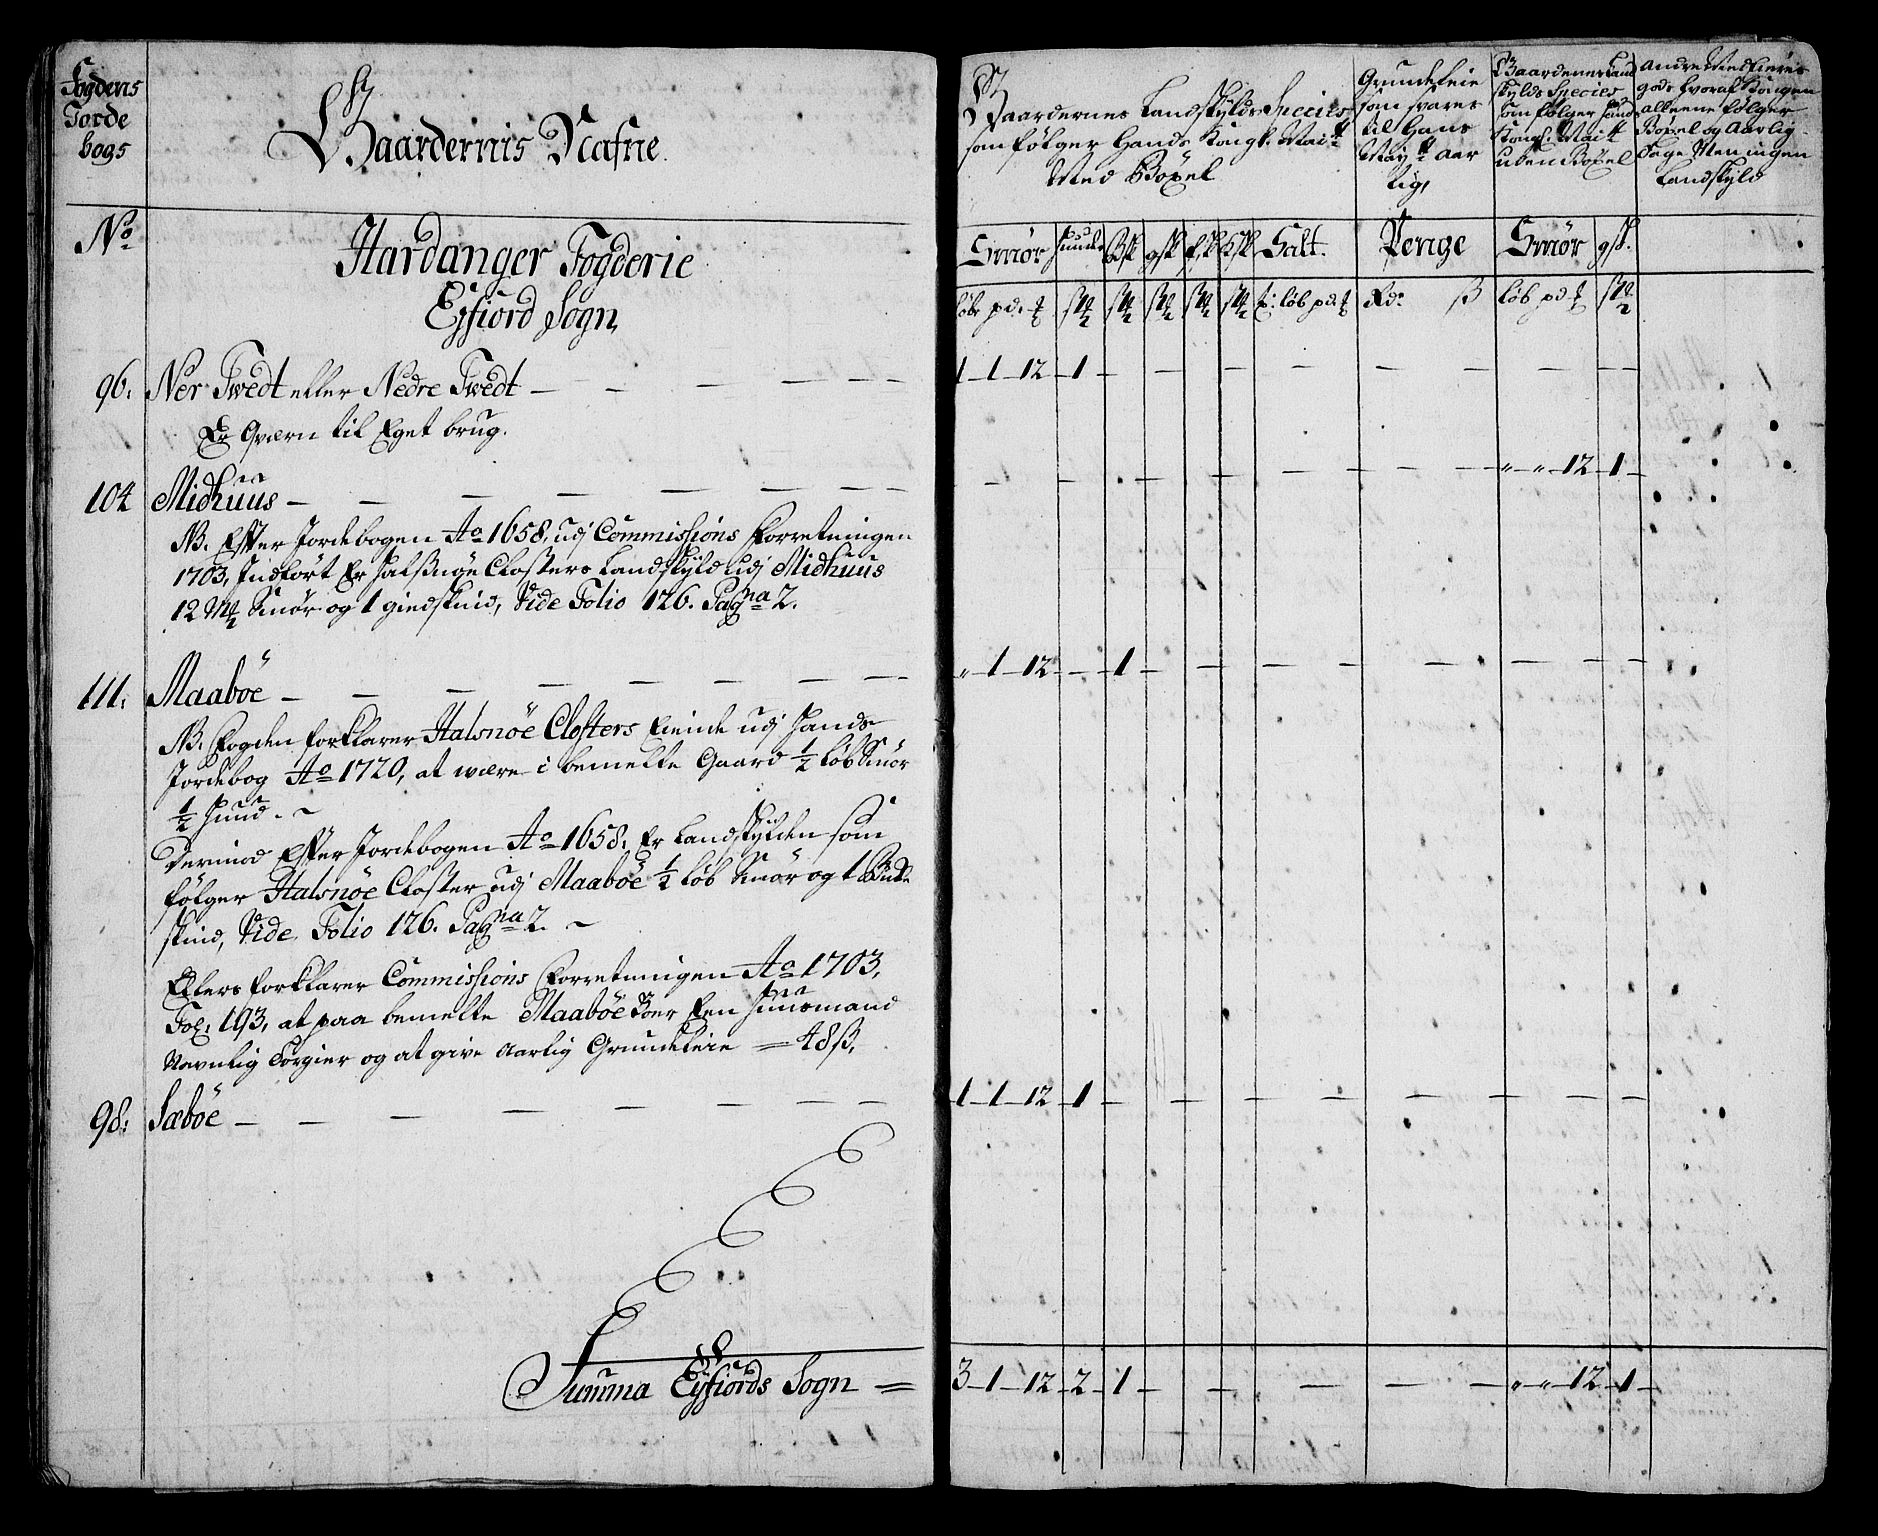 Fogdens
Jorde
bogs
No
Gaardernis Nafne
Hardanger Fogderie
Eyfiord Sogn
96. Ner Twedt eller Nedre Twedt
Er Qværn til Eget brug.
104 Midhuus
NB. Efter Jordebogen Ao 1658, udj Commissions Forretningen
1703, Indført Er Halsnøe Closters Landskyld udj Midhuus
12 Mk Smør og 1 giedskind, Vide Folio 126. Pagna 2.
111. Maaböe
NB. Fogden forklarer Halsnöe Closters Eiende udj Hands
Jordebog Ao 1720, at være i bemelte Gaard 1/2 løb Smör
1/2 Huud.
Derimod Efter Jordebogen Ao 1658. Er Landskylden som
følger Halsnöe Closter udj Maaböe 1/2 løb Smör og 1 Bukke
skind, Vide Folio 126. Pagna 2.
Ellers forklarer Commissions Forretningen Ao 1703,
Fol. 193, at paa bemelte Maaböe Boer Een Huusmand
Navnlig Torgier og at give Aarlig Grundeleie = 48 ß.
98. Sæböe
Summa Eyfiords Sogn =
Gaardernes Landskylds Species
som følger Hands Kongl. Maitt
Med Böxel
Grundeleie
som svares
til Hans
Maytt Aar
lig,
Gaardenes Land
skylds Species
som følger Hands
Kongl. Maitt
uden Böxel
Andre Med Eieres
gods hvoraf Kongen
alleene følger
Böxel og Aarlig
Tage Men ingen
Landskyld
Smör Huude Bsk gsk fsk Ksk Salt. Penge Smör gsk.
løb pd. Mk Løb pd. Rd. ß løb pd
1 — 1 — 12 — 1 —
" " 12 — 1 —
" 1 — 12 — — 1 —
1 — 1 — 12 — 1 —
3 — 1 — 12 — 2 — 1 — " " 12 — 1 —